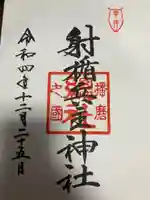 奉拝
射楯兵主神社
播磨
令和四年十二月二十五日